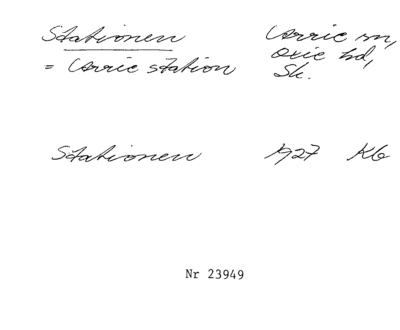 Stationen Lorrie sn,
Oxie hd,
= Lorrie station Sk.
Stationen 1927 Kb
Nr 23949